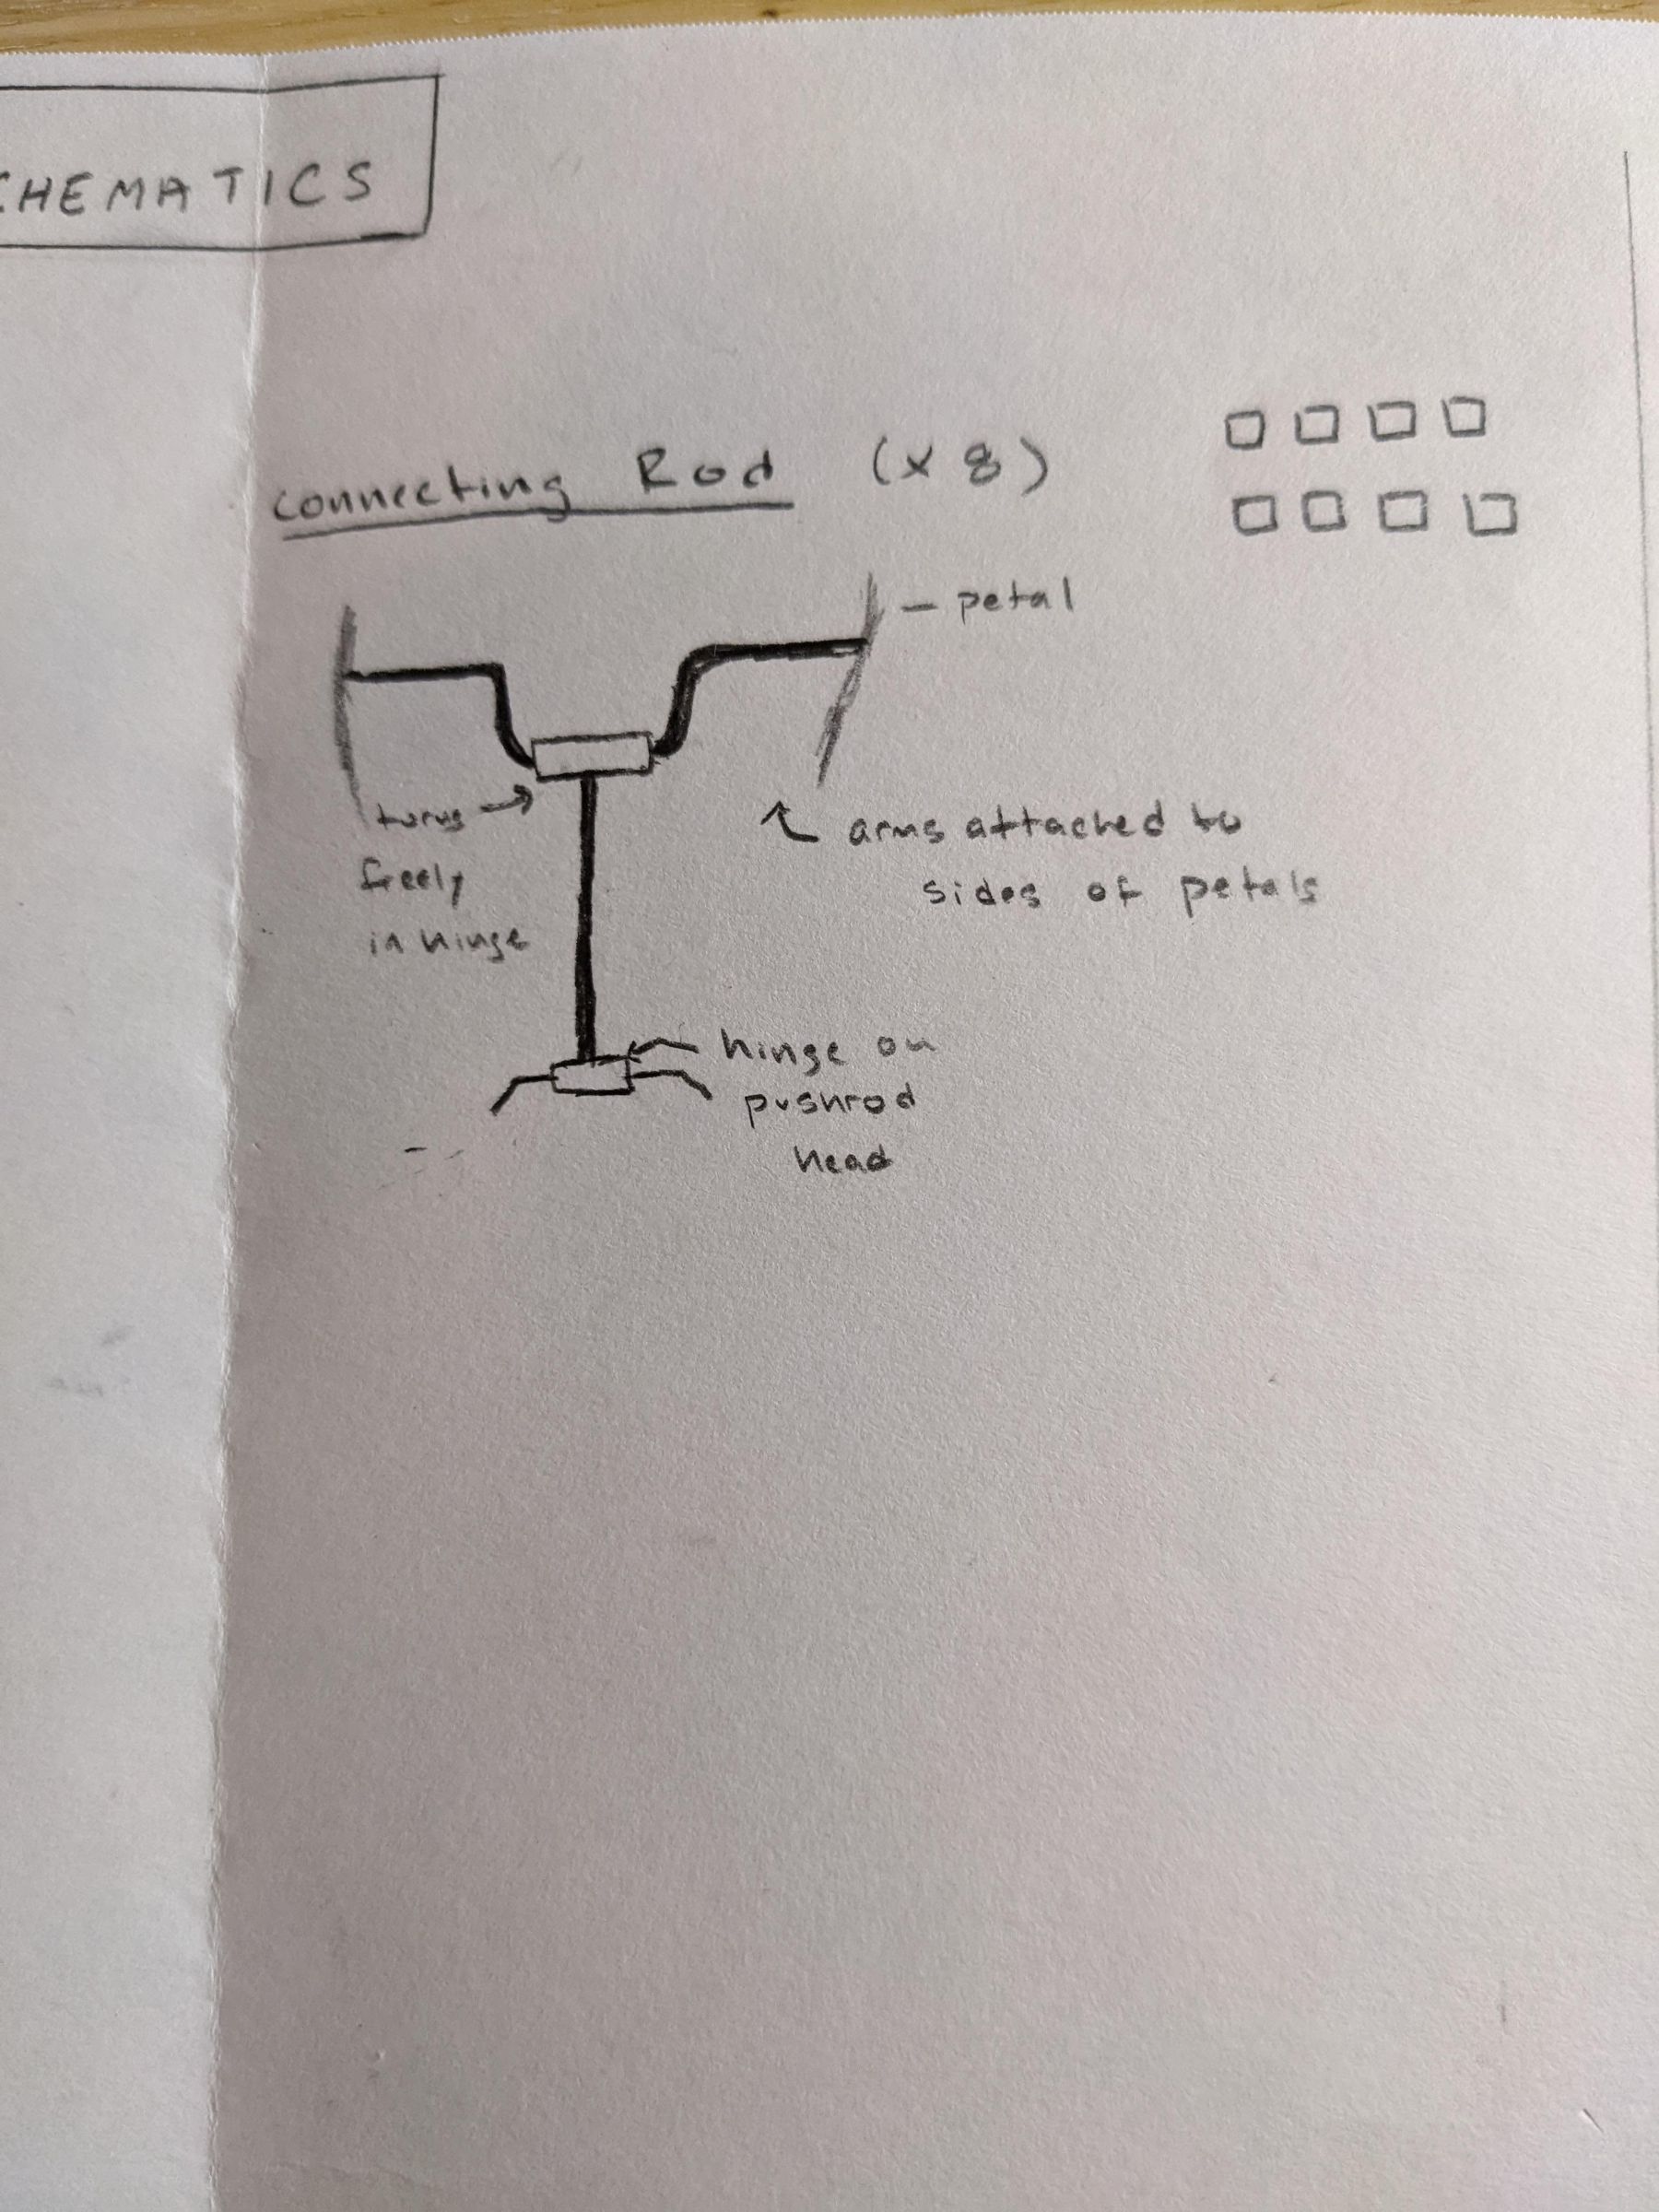 CHEMATICS
Connecting Rod (x 8)
- petal
turns
freely
in hinge
arms attached to
sides of petals
hinge on
pushrod
head